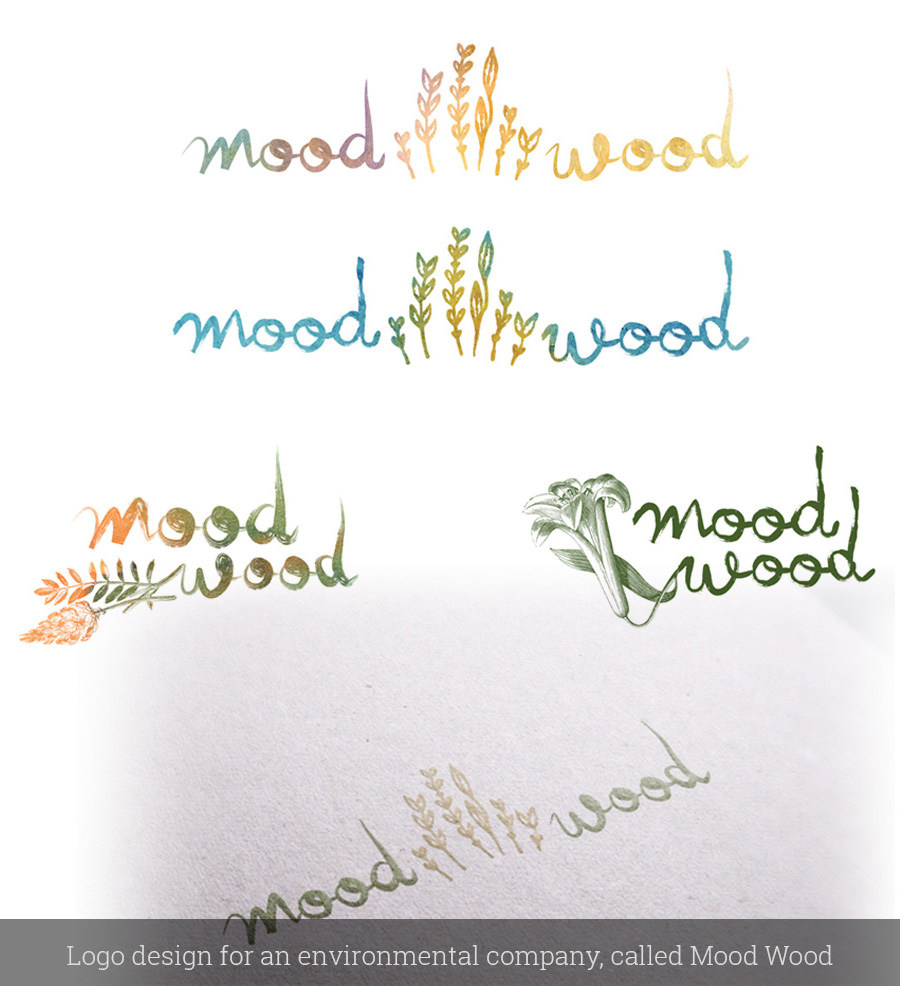 mood wood
mood wood
mood
wood
mood
wood
mood wood
Logo design for an environmental company, called Mood Wood